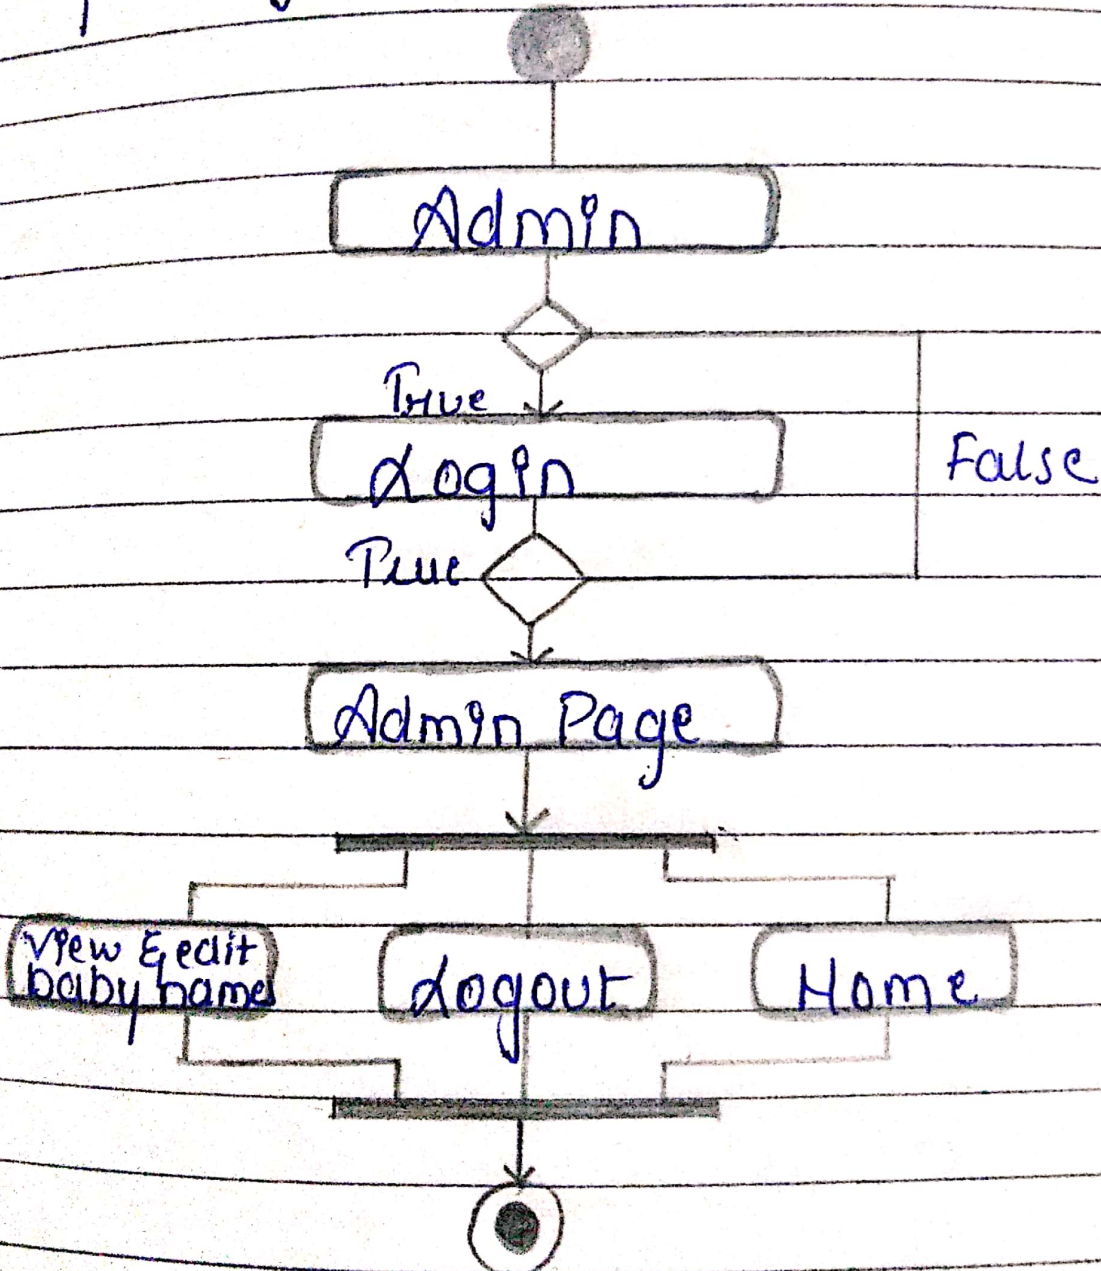 Admin
True
Login
False
True
Admin Page
View & edit
baby names
Logout
Home